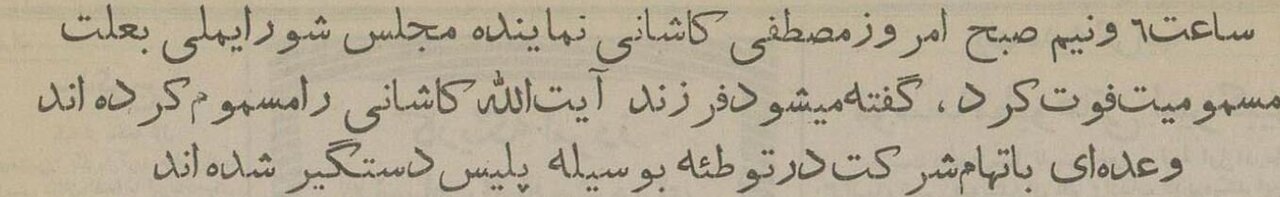 ساعت٦ ونیم صبح امروز مصطفی کاشانی نماینده مجلس شورایملی بعلت
مسمومیت فوت کرد، گفته میشود فرزند آیت‌الله کاشانی را مسموم کرده‌اند
وعده‌ای باتهام شرکت در توطئه بوسیله پلیس دستگیر شده‌اند